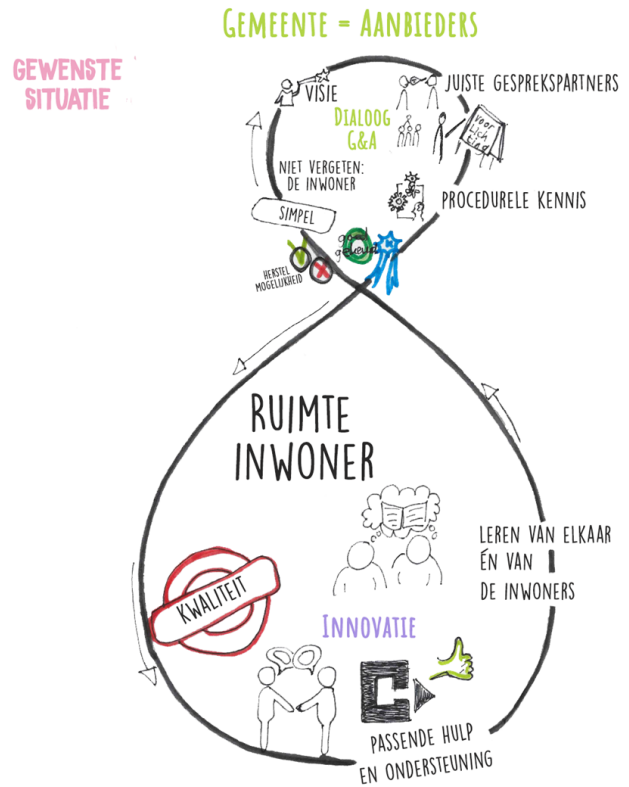 GEMEENTE = AANBIEDERS
GEWENSTE
SITUATIE
VISIE
JUISTE GESPREKSPARTNERS
DIALOOG
G&A
Voor
lich
ting
NIET VERGETEN:
DE INWONER
PROCEDURELE KENNIS
SIMPEL
goed
gekeurd
HERSTEL
MOGELIJKHEID
RUIMTE
INWONER
LEREN VAN ELKAAR
ÉN VAN
DE INWONERS
KWALITEIT
INNOVATIE
PASSENDE HULP
EN ONDERSTEUNING